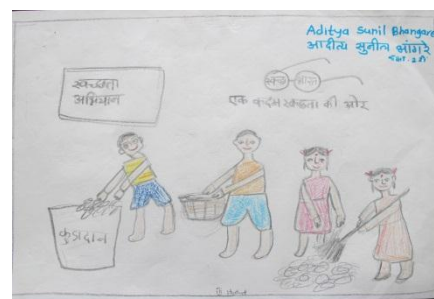 Aditya Sunil Bhangare
आदीत्य सुनील भांगरे
स्वच्छता
अभियान
स्वच्छ भारत
एक कदम स्वच्छता की ओर
कुडादान